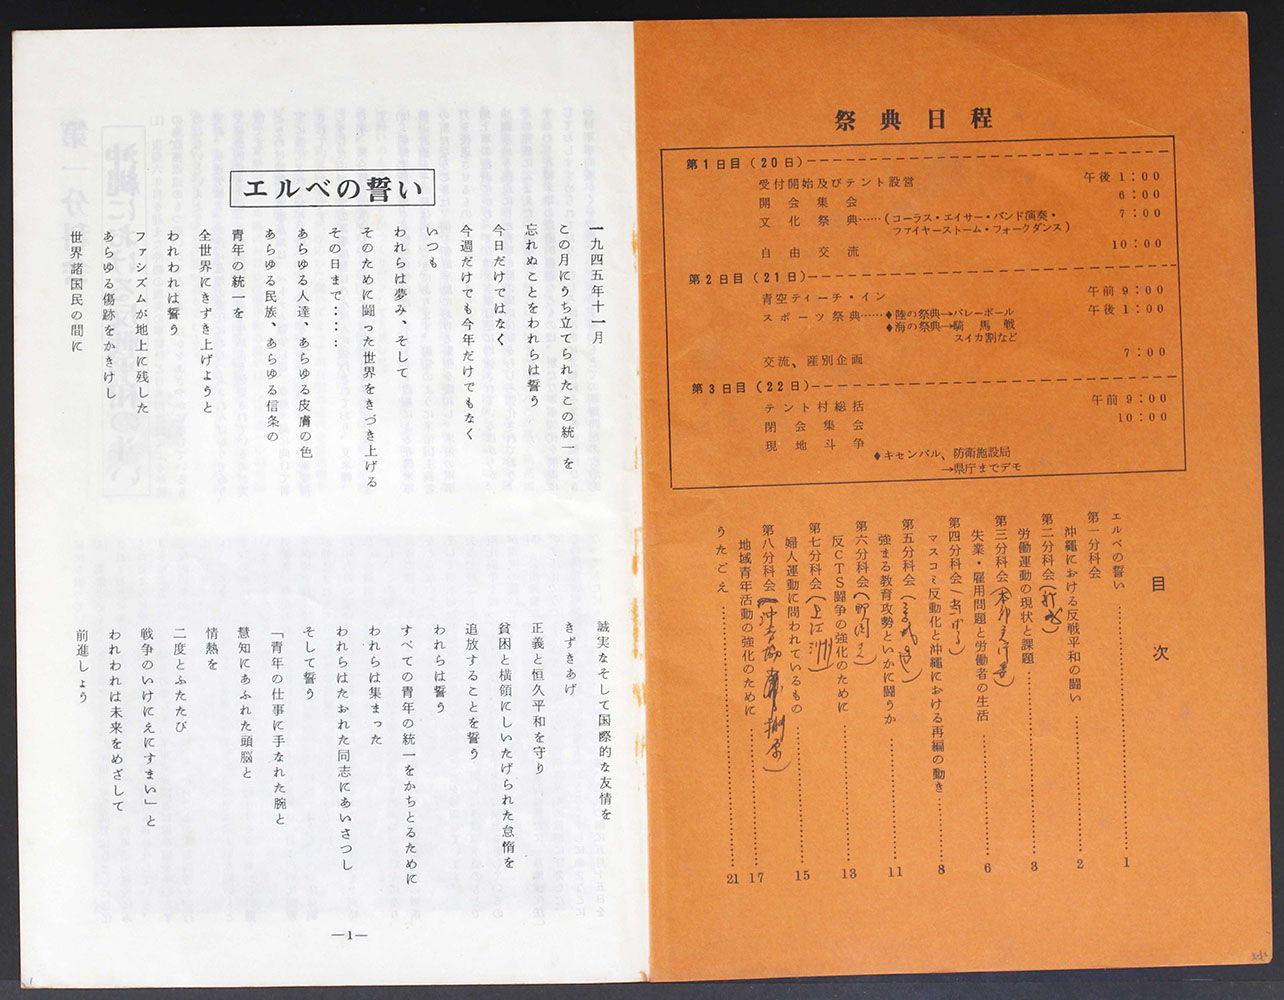 祭典日程
第1日目(20日)
受付開始及びテント設営 午後 1:00
開会集会 6:00
文化祭典……(コーラス・エイサー・バンド演奏・ 7:00
ファイヤーストーム・フォークダンス)
自由交流 10:00
第2日目(21日)
青空ティーチ・イン 午前 9:00
スポーツ祭典……♦陸の祭典→バレーボール 午後 1:00
♦海の祭典→騎馬戦
スイカ割など
交流、産別企画 7:00
第3日目(22日)
テント村総括 午前 9:00
閉会集会 10:00
現地斗争
♦キセンバル、防衛施設局
→県庁までデモ
目次
エルベの誓い……1
第一分科会
沖縄における反戦平和の闘い……2
第二分科会
労働運動の現状と課題……3
第三分科会
失業・雇用問題と労働者の生活……6
第四分科会
マスコミ反動化と沖縄における再編の動き……8
第五分科会
強まる教育攻勢といかに闘うか……11
第六分科会
反CTS闘争の強化のために……13
第七分科会(上江洲)
婦人運動に問われているもの……15
第八分科会
地域青年活動の強化のために……17
うたごえ……21
エルベの誓い
一九四五年十一月
この月にうち立てられたこの統一を
忘れぬことをわれらは誓う
今日だけではなく
今週だけでも今年だけでもなく
いつも
われらは夢み、そして
そのために闘った世界をきづき上げる
その日まで‥‥‥
あらゆる人達、あらゆる皮膚の色
あらゆる民族、あらゆる信条の
青年の統一を
全世界にきずき上げようと
われわれは誓う
ファシズムが地上に残した
あらゆる傷跡をかきけし
世界諸国民の間に
誠実なそして国際的な友情を
きずきあげ
正義と恒久平和を守り
貧困と横領にしいたげられた怠惰を
追放することを誓う
われらは誓う
すべての青年の統一をかちとるために
われらは集まった
われらはたおれた同志にあいさつし
そして誓う
「青年の仕事に手なれた腕と
慧知にあふれた頭脳と
情熱を
二度とふたたび
戦争のいけにえにすまい」と
われわれは未来をめざして
前進しょう
—1—